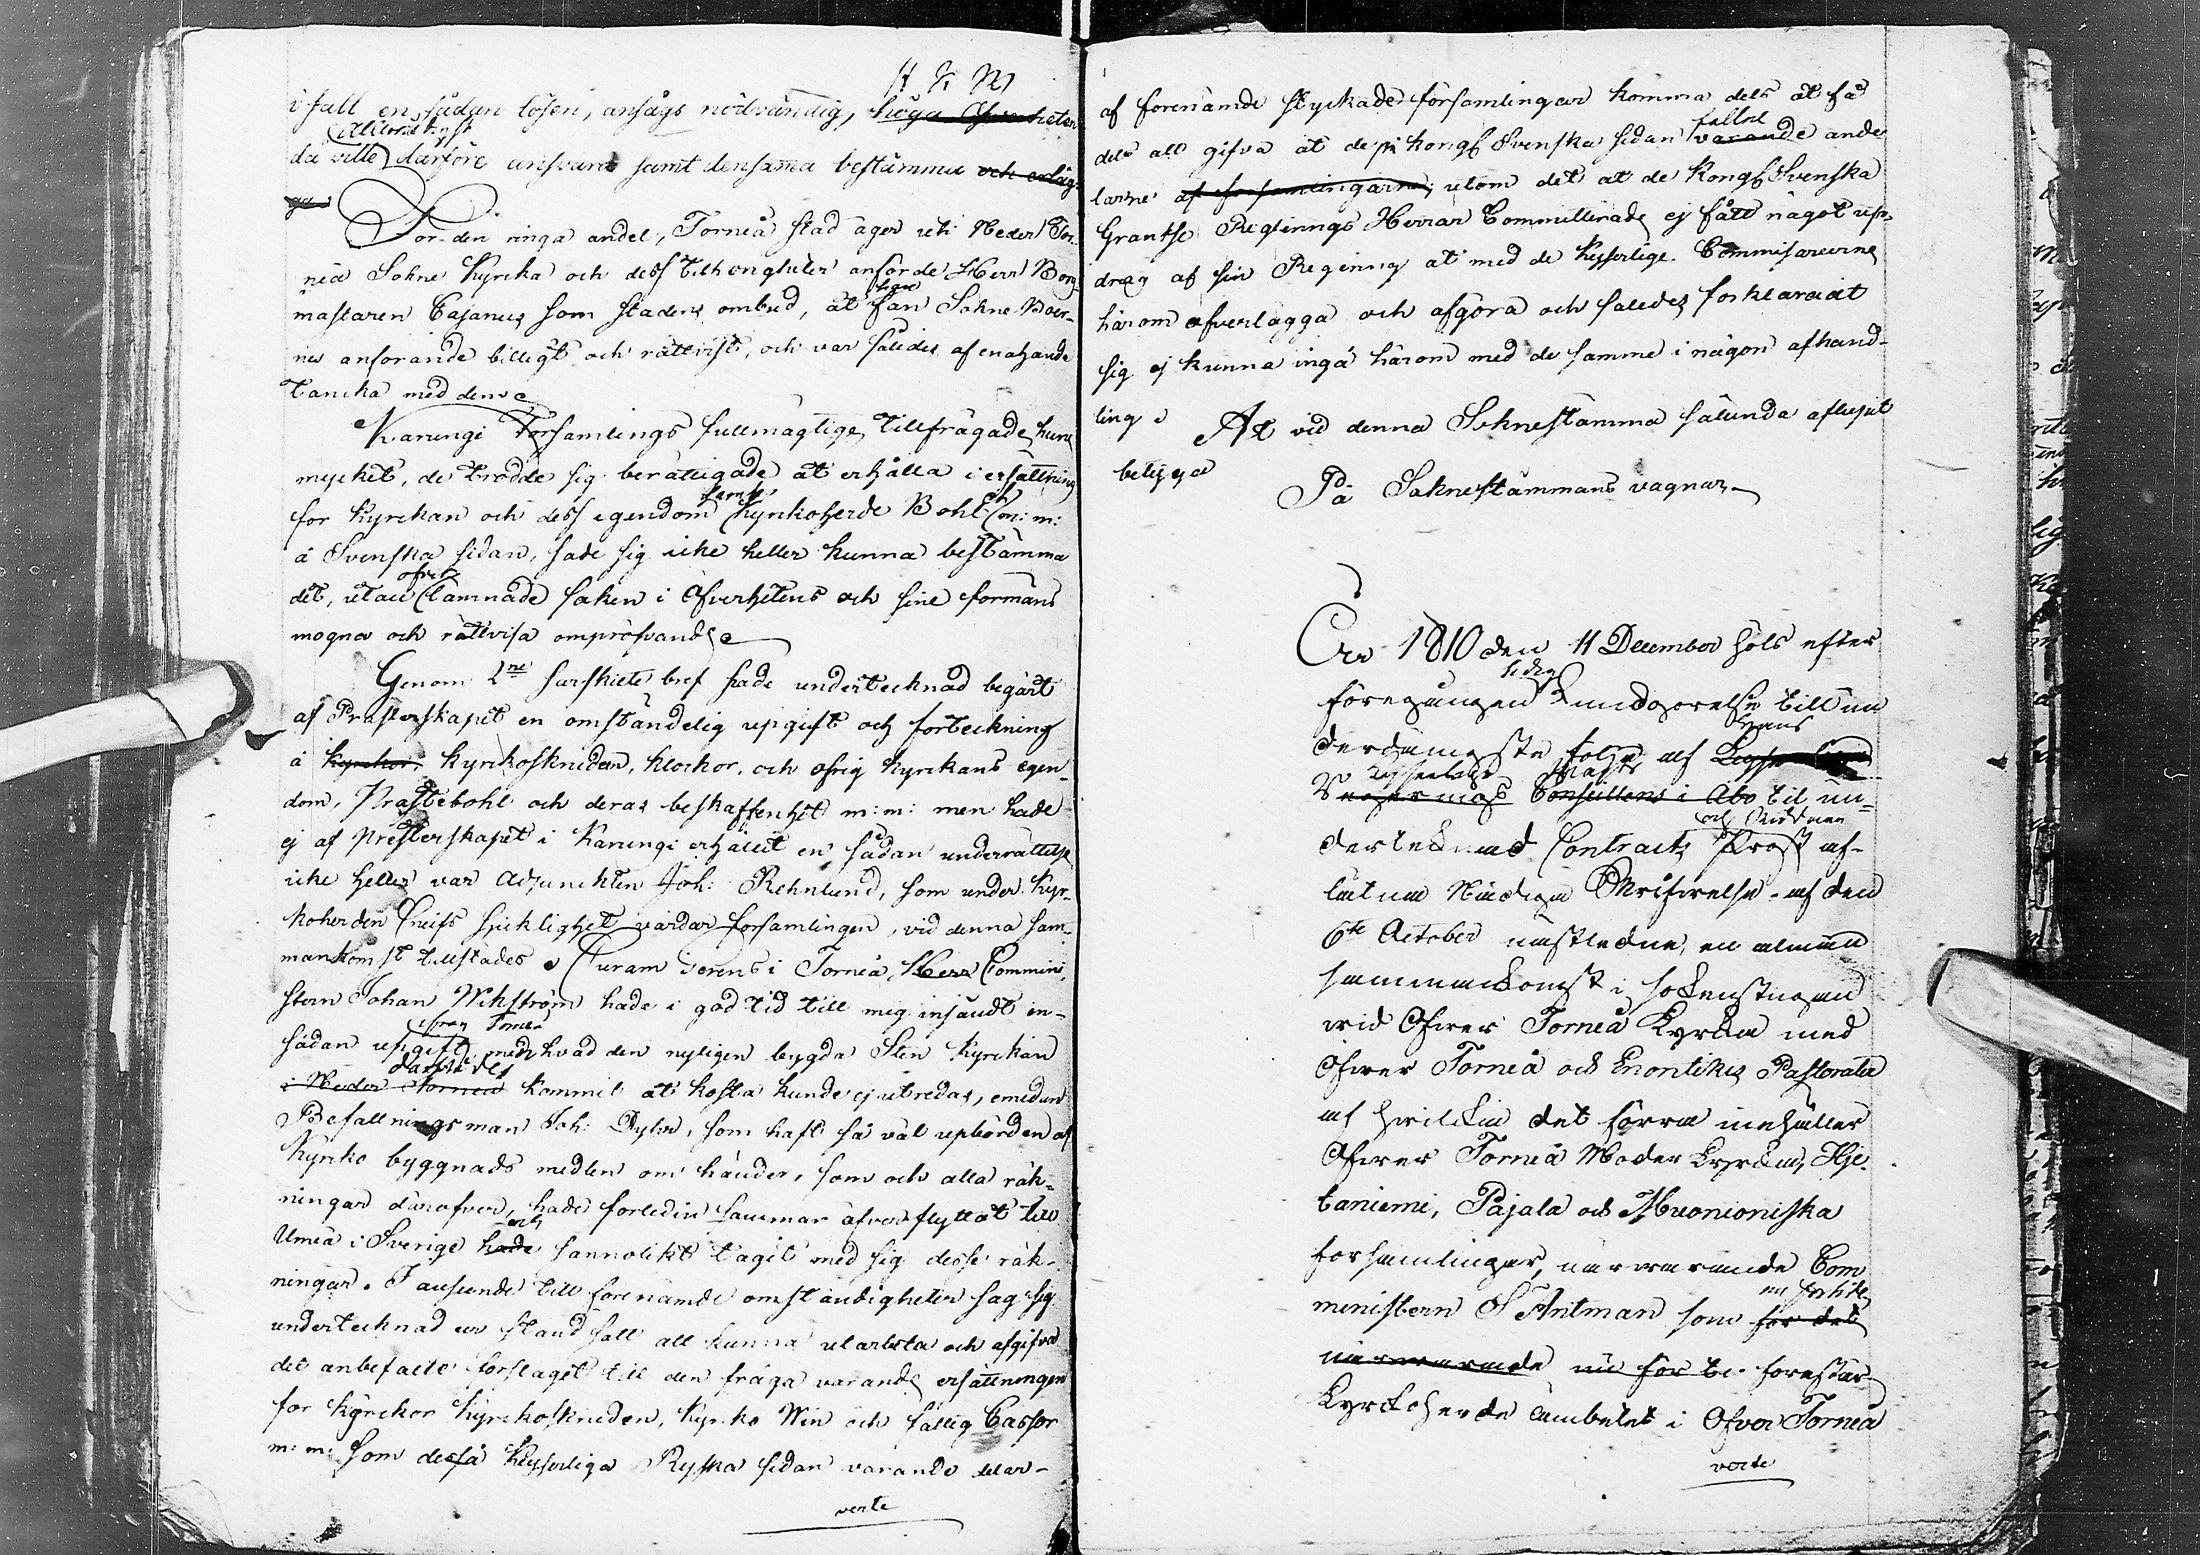 i fall en sådan lösen, ansågs nödvändig, höga Öfverheten
allernådigst
då ville därföre ansvara samt densamma bestämma och erläg-
ga
För den ringa andel, Torneå stad äger uti Neder Tor-
neå Sokne Kyrcka och dess tillhörigheter anförde Herr Borg-
mästaren Cajanus som stadens ombud, at han Sokne Boer-
nes anförande billigt och rättvist, och var således af enahanda
tancka med dem
Karungi Församlings fullmägtige, tillfrågade huru
mycket, de trodde sig berättigade at erhålla i ersättning
for Kyrckan och dess egendom samt Kyrkoherde Bohl m: m:
å Svenska sidan, sade sig icke heller kunna bestämma
det, utan öfver lämnade saken i Öfverhetens och sine förmäns
mogna och rättvisa ompröfvande
Genom 2ne särskilte bref hade undertecknad begärt
af Prästerskapet en omständelig upgift och förteckning
å Kyrckor, Kyrkoskruden, klockor, och öfrig Kyrckans egen-
dom, Prästebohl och deras beskaffenhet m: m: men hade
ej af Presterskapet i Karungi erhållit en sådan underrättelse
icke heller var Adjunckten Joh: Rehnlund, som under Kyr-
koherden sjucklighet vårdar församlingen, vid denna sam-
mankomst tillstädes. Curam gerens i Torneå, Herr Commini-
stern Johan Wikström hade i god tid till mig insändt en
ifrån Torneå
sådan upgift, med hvad den nyligen bygda Sten Kyrckan
därstädes
i Neder Torneå kommit at kosta kunde ej utredas, emedan
Befallningsman Joh: som haft så väl upbörden af
Kyrko byggnads medlen om händer, som och alla räk-
ningar däröfver, hade förleden sommar öfverflyttat till
Umeå i Sverige och hade sannolikt tagit med sig desse räk-
ningar. I anseende till förenämde omständigheter såg sig
undertecknad ur stånd satt att kunna utarbeta och afgifva
det anbefalte förslaget till den fråga varande ersättningen
for Kyrckor Kyrckoskruden, Kyrko Win och fattig Cassor
m: m: som desså Keyserliga Ryska sidan varande delar-
verte
af förenämde styckade församlingar komma dels at få
fallne
dels att gifva åt de på Kongl Svenska sidan varande ande
larne af församlingarna, utom det at de Kongl Svenska
Gräntse Reglerings Herrar Committerade ej fått något up-
drag af sin Regering at med de Keyserlige Commissarierne
härom öfverlägga och afgöra och således förklarat
sig ej kunna ingå härom med de samme i någon afhand-
ling
At vid denna Soknestämma sålunda aflupit
betyga
På Soknestämmans vägnar
År 1810 den 11 December höls efter
föregången Kundgörelse till un
Hans
derdånigste följe af
Kejserliga Majts
Regerings Conseillens i Åbo til un-
och Riddaren
dertecknad Contracts Prost af-
låtne Nådiga Skrifvelse af den
6te October nästledne, en almän
sammankomst i sockenstugan
wid Öfwer Torneå Kyrcka med
Öfwer Torneå och Enontekis Pastorater
af hwilcka det förra inehåller
Öfwer Torneå Moder Kyrcka, Hje-
taniemi, Pajala och Muonioniska
församlingar, närwarande Com
ministern S Antman som för det
närwarande nu för ti förestår
Kyrckoherde ämbetet i Öfver Torneå
verte